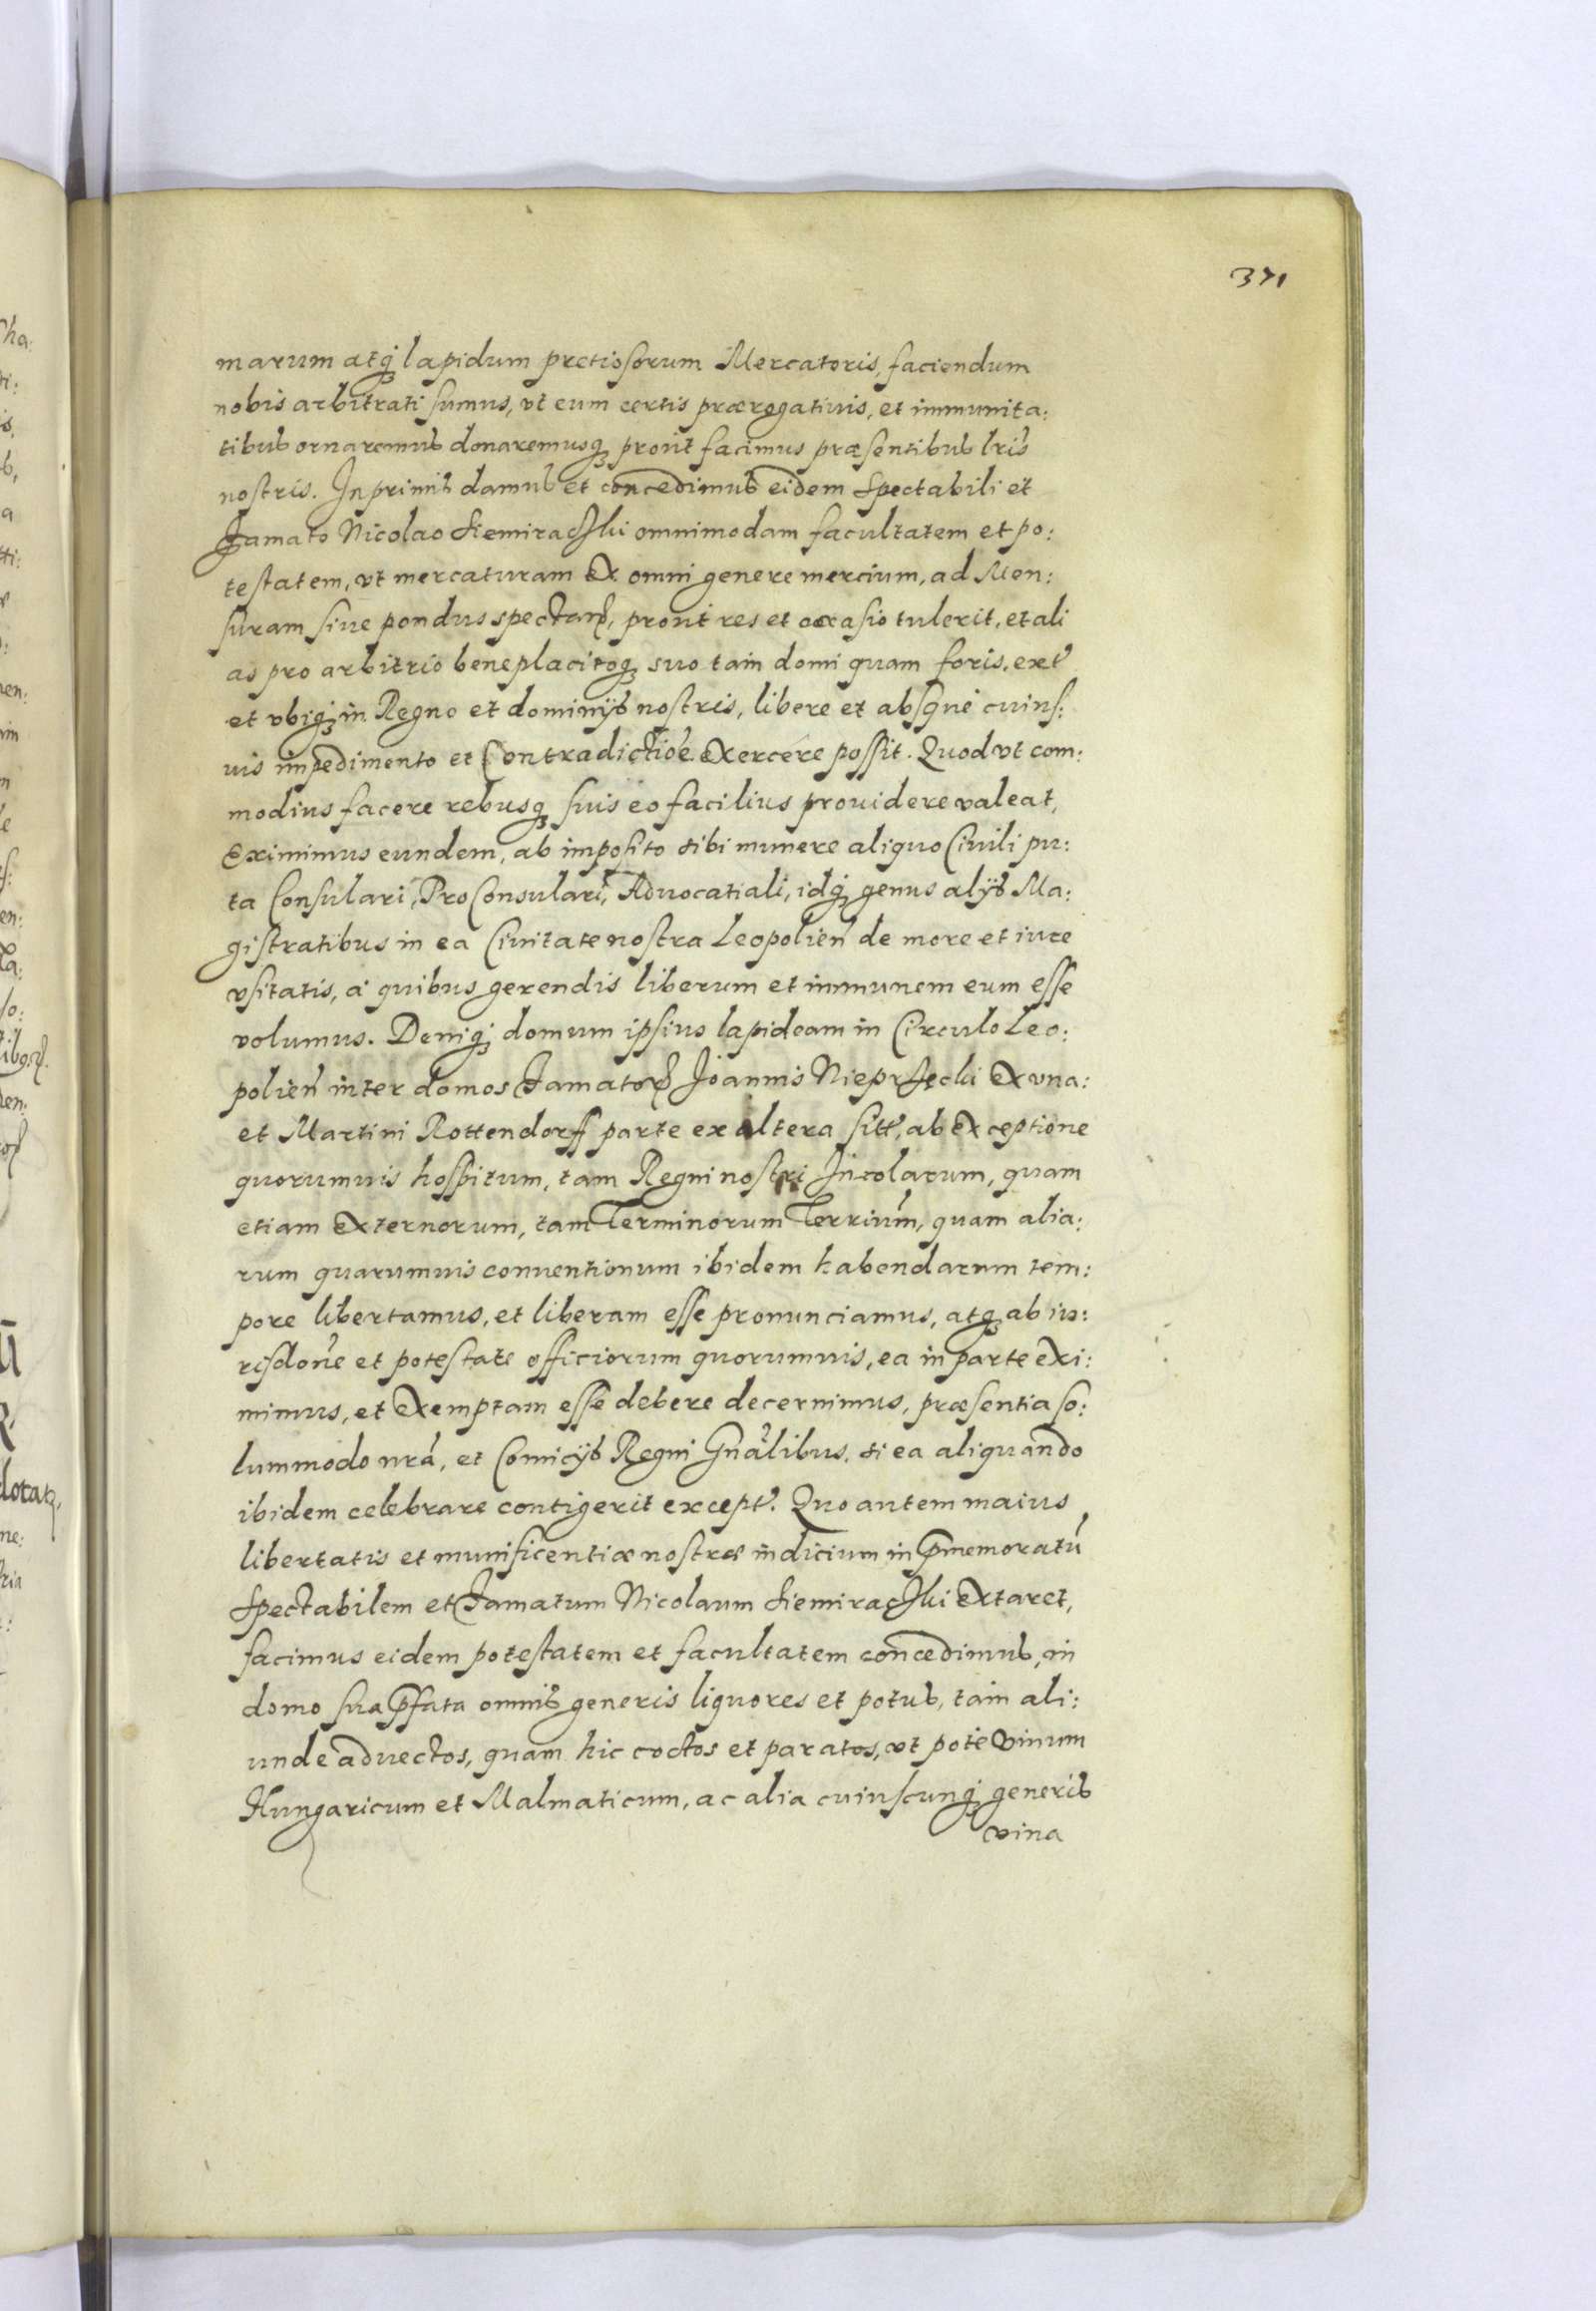 371
marum atq̃ lapidum pretiosorum Mercatoris, faciendum
nobis arbitrati sumus, vt eum certis prærogatiuis, et immunita:
tibus ornaremus donaremusq̃ prout facimus præsentibus lris
nostris. Inprimis damus et concedimus eidem Spectabili et
Famato Nicolao Siemiraczki omnimodam facultatem et po:
testatem, vt mercaturam ex omni genere mercium, ad Men:
suram siue pondus spectan̄, prout res et occasio tulerit, et ali
as pro arbitrio beneplacitoq̃ suo tam domi quam foris, ext̃
et vbiq̃ in Regno et dominijs nostris, libere et absque cuius:
uis impedimento et Contradictiõe exercere possit. Quod vt com:
modius facere rebusq̃ suis eo facilius prouidere valeat,
Eximimus eundem, ab imposito sibi munere aliquo Ciuili pu:
ta Consulari, ProConsulari, Aduocatiali, idq̃ genus alijs Ma:
gistratibus in ea Ciuitate nostra Leopolien̄ de more et iure
vsitatis, à quibus gerendis liberum et immunem eum esse
volumus. Deniq̃ domum ipsius lapideam in Circulo Leo:
polien̄ inter domos Famator̃ Joannis Nieprsecki ex vna:
et Martini Rottendorff parte ex altera sitt̃, ab exceptione
quorumuis hospitum, tam Regni nostri Incolarum, quam
etiam externorum, tam Terminorum Terrium̃, quam alia:
rum quarumuis conuentionum ibidem habendarum tem:
pore libertamus, et liberam esse pronunciamus, atq̃ ab iu:
risdone et potestate officiorum quorumuis, ea in parte exi:
mimus, et exemptam esse debere decernimus, præsentia so:
lummodo nrã, et Comicijs Regni Gnãlibus, si ea aliquando
ibidem celebrare contigerit except̃. Quo autem maius
libertatis et munificentiæ nostræ indicium in p̃memoratũ
Spectabilem et Famatum Nicolaum Siemiraczki extaret,
facimus eidem potestatem et facultatem concedimus, in
domo sua p̃fata omnis generis liquores et potus, tam ali:
unde aduectos, quam hic coctos et paratos, vt pote vinum
Hungaricum et Malmaticum, ac alia cuiuscunq̃ generis
vina